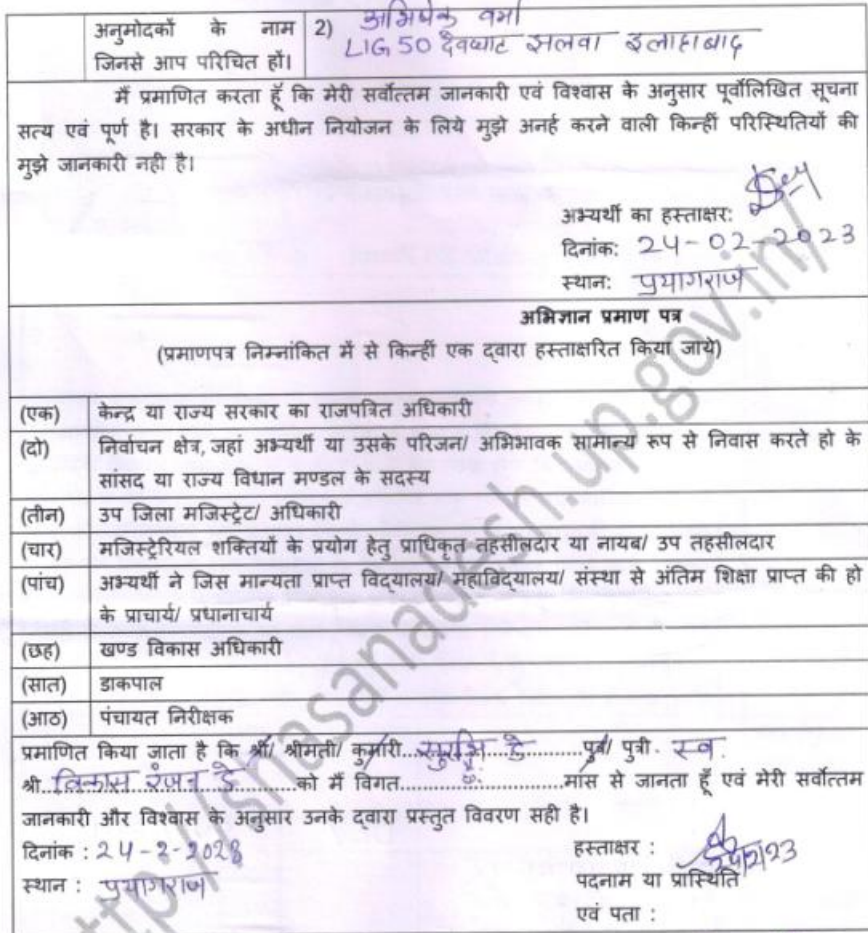 अनुमोदकों के नाम 2) अभिषेक वर्मा
जिनसे आप परिचित हों। LIG 50 देवघाट झलवा इलाहाबाद
मैं प्रमाणित करता हूँ कि मेरी सर्वोत्तम जानकारी एवं विश्वास के अनुसार पूर्वोलिखित सूचना
सत्य एवं पूर्ण है। सरकार के अधीन नियोजन के लिये मुझे अनर्ह करने वाली किन्हीं परिस्थितियों की
मुझे जानकारी नही है।
अभ्यर्थी का हस्ताक्षर:
दिनांक: 24-02-2023
स्थान: प्रयागराज
अभिज्ञान प्रमाण पत्र
(प्रमाणपत्र निम्नांकित में से किन्हीं एक द्वारा हस्ताक्षरित किया जाये)
(एक) केन्द्र या राज्य सरकार का राजपत्रित अधिकारी
(दो) निर्वाचन क्षेत्र, जहां अभ्यर्थी या उसके परिजन/ अभिभावक सामान्य रूप से निवास करते हो के
सांसद या राज्य विधान मण्डल के सदस्य
(तीन) उप जिला मजिस्ट्रेट/ अधिकारी
(चार) मजिस्ट्रेरियल शक्तियों के प्रयोग हेतु प्राधिकृत तहसीलदार या नायब/ उप तहसीलदार
(पांच) अभ्यर्थी ने जिस मान्यता प्राप्त विद्यालय/ महाविद्यालय/ संस्था से अंतिम शिक्षा प्राप्त की हो
के प्राचार्य/ प्रधानाचार्य
(छह) खण्ड विकास अधिकारी
(सात) डाकपाल
(आठ) पंचायत निरीक्षक
प्रमाणित किया जाता है कि श्री/ श्रीमती/ कुमारी...सुरभि डे...पुत्र/ पुत्री. स्व.
श्री...विकास रंजन डे...को मैं विगत...छः...मांस से जानता हूँ एवं मेरी सर्वोत्तम
जानकारी और विश्वास के अनुसार उनके द्वारा प्रस्तुत विवरण सही है।
दिनांक : 24-2-2023 हस्ताक्षर : 24/2/23
स्थान : प्रयागराज पदनाम या प्रास्थिति
एवं पता :
http://shasanadesh.up.gov.in/